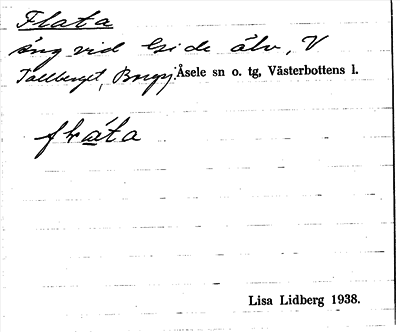 Flata
äng vid Gide älv, V
Tallberget, Borgsj. Åsele sn o. tg, Västerbottens l.
flata
Lisa Lidberg 1938.